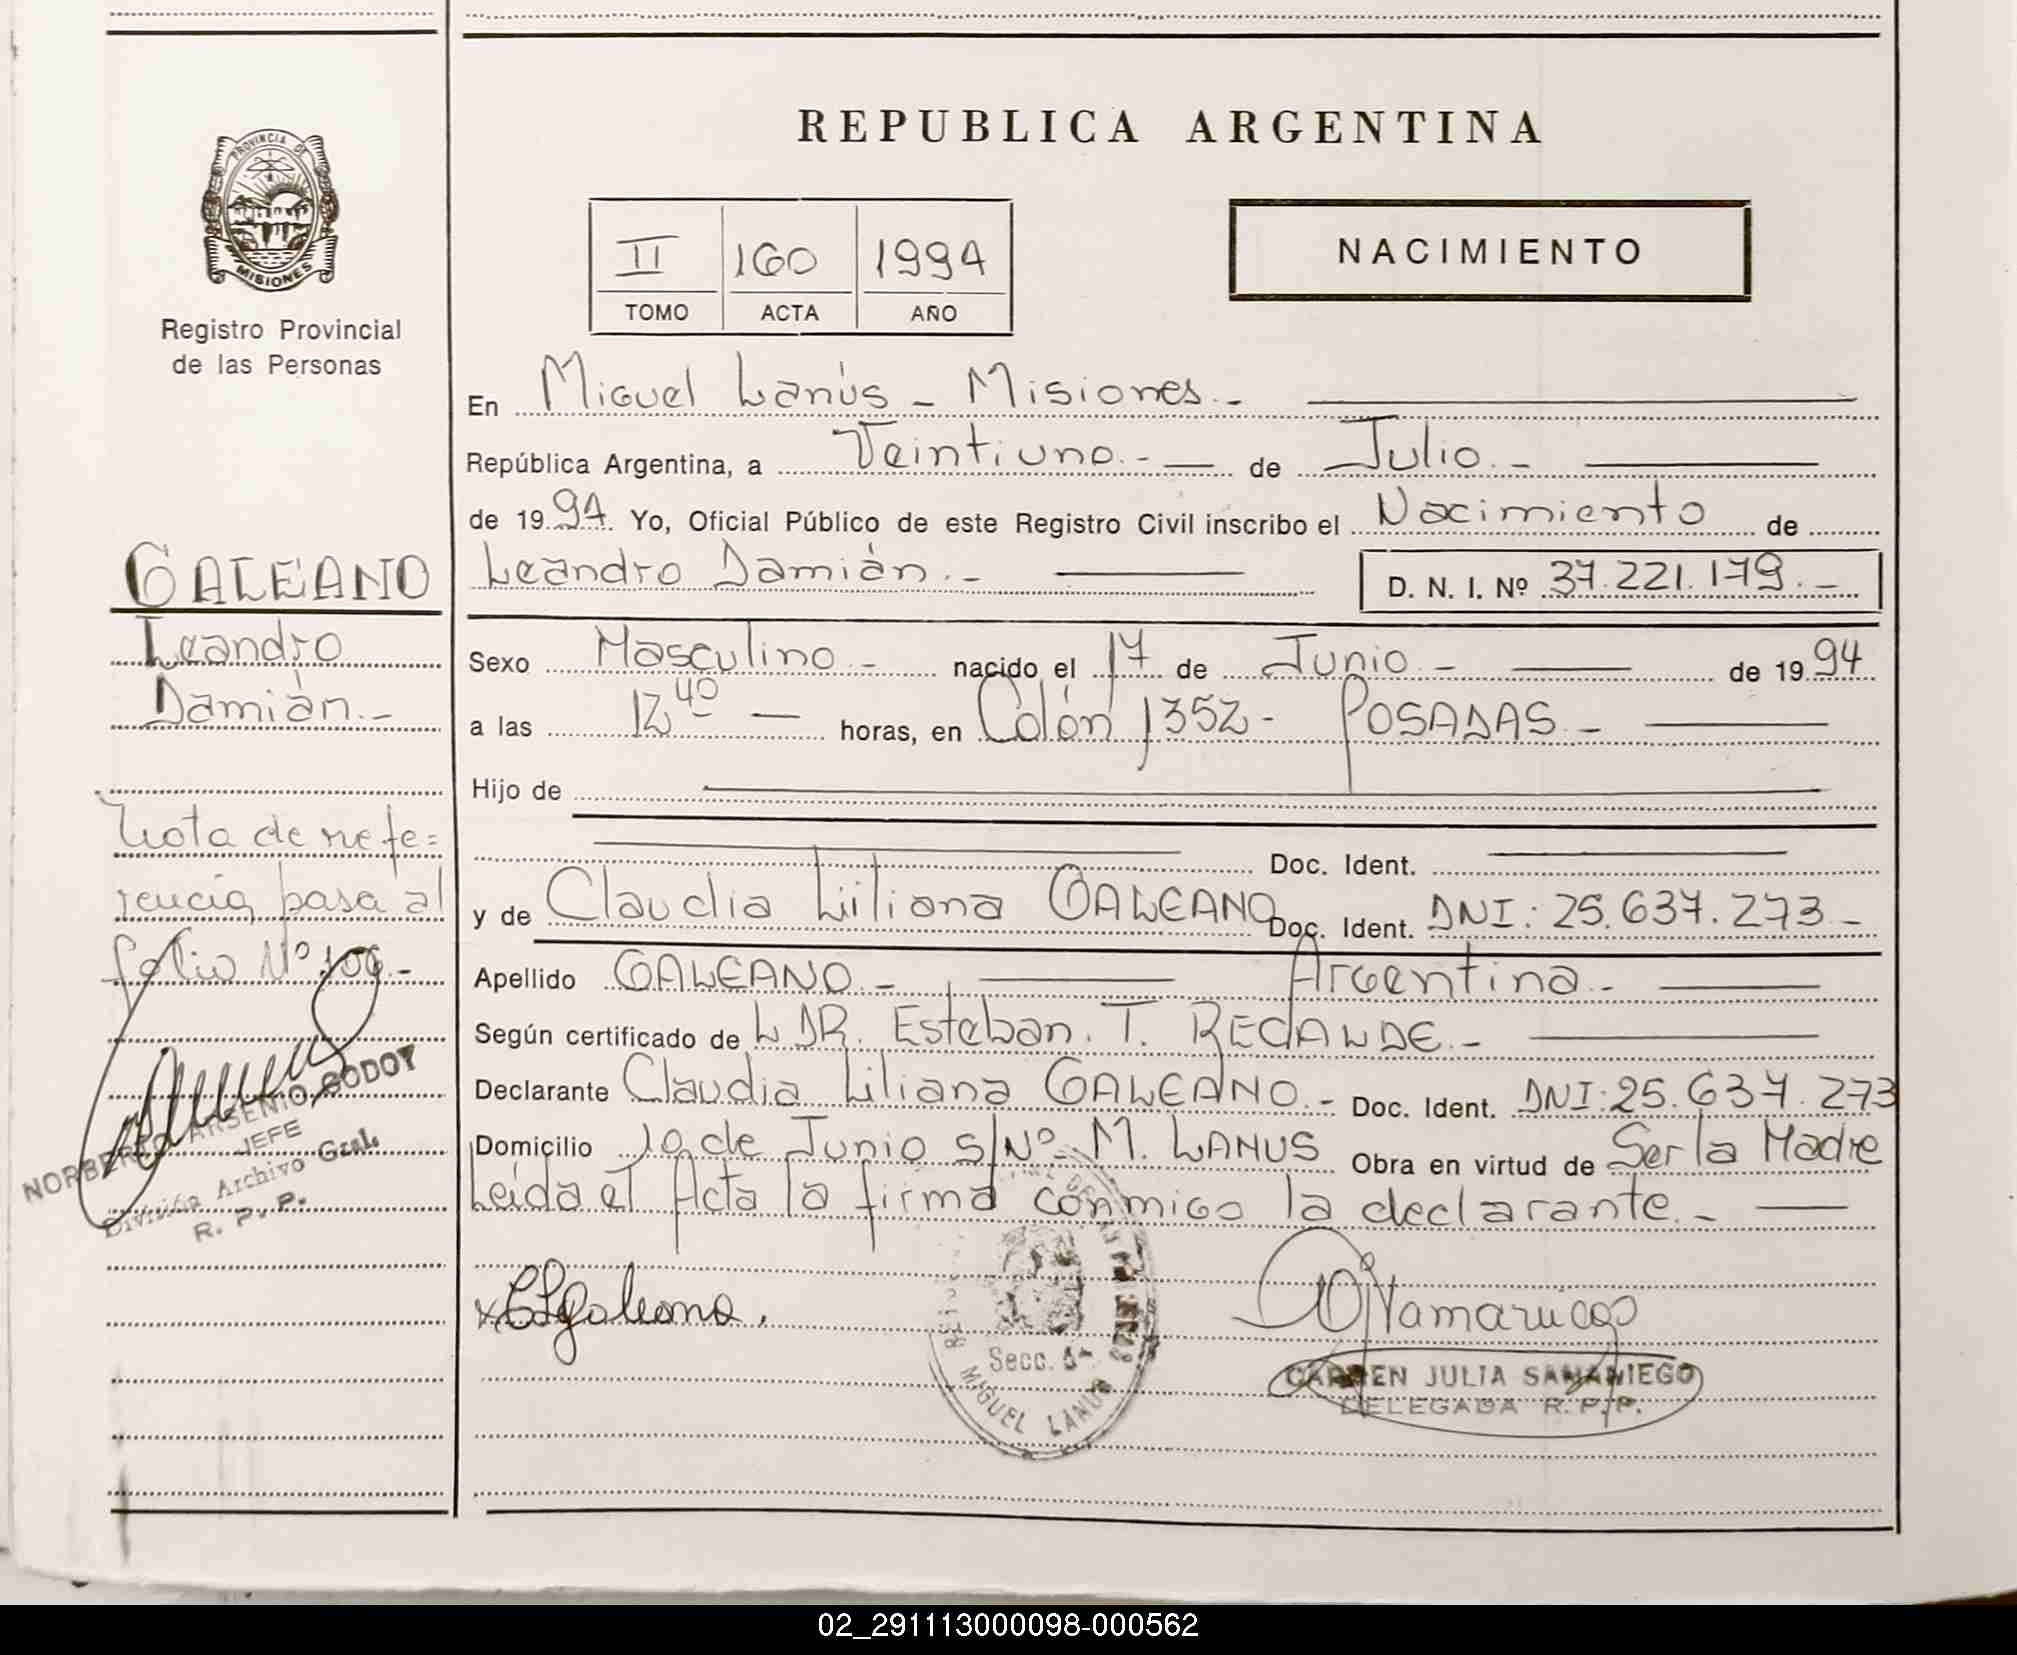 REPUBLICA ARGENTINA
PROVINCIA DE
MISIONES
Registro Provincial
de las Personas
II 160 1994
TOMO ACTA AÑO
NACIMIENTO
En Miguel Lanús - Misiones.-
República Argentina, a Veintiuno.- de Julio.-
de 1994. Yo, Oficial Público de este Registro Civil inscribo el Nacimiento de
Leandro Damián.- D. N. I. Nº 37.221.179.-
GALEANO
Leandro
Damián.-
Sexo Masculino.- nacido el 17 de Junio.- de 1994
a las 12 40 horas, en Colón 1352- POSADAS.-
Hijo de
Doc. Ident.
y de Claudia Liliana GALEANO Doc. Ident. DNI: 25.637.273-
Apellido GALEANO.- Argentina.-
Según certificado de L DR. Esteban. T. RECALDE.-
Declarante Claudia Liliana GALEANO.- Doc. Ident. DNI: 25.637.273
Domicilio 10 de Junio s/Nº M. LANUS Obra en virtud de Ser la Madre
Leída el Acta la firma conmigo la declarante.-
Nota de refe=
rencia pasa al
folio Nº
NORBERTO ARSENIO GODOY
JEFE
División Archivo Gral.
R. P. P.
Secc.
MIGUEL LANUS
CARMEN JULIA SAMANIEGO
DELEGADA R. P. P.
02_291113000098-000562